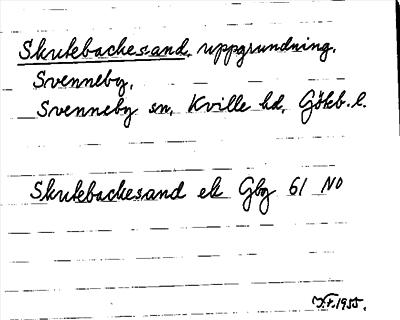 Skutebackesand, uppgrundning.
Svenneby,
Svenneby sn, Kville hd, Göteb. l.
Skutebackesand ek Gbg 61 NO
1955.